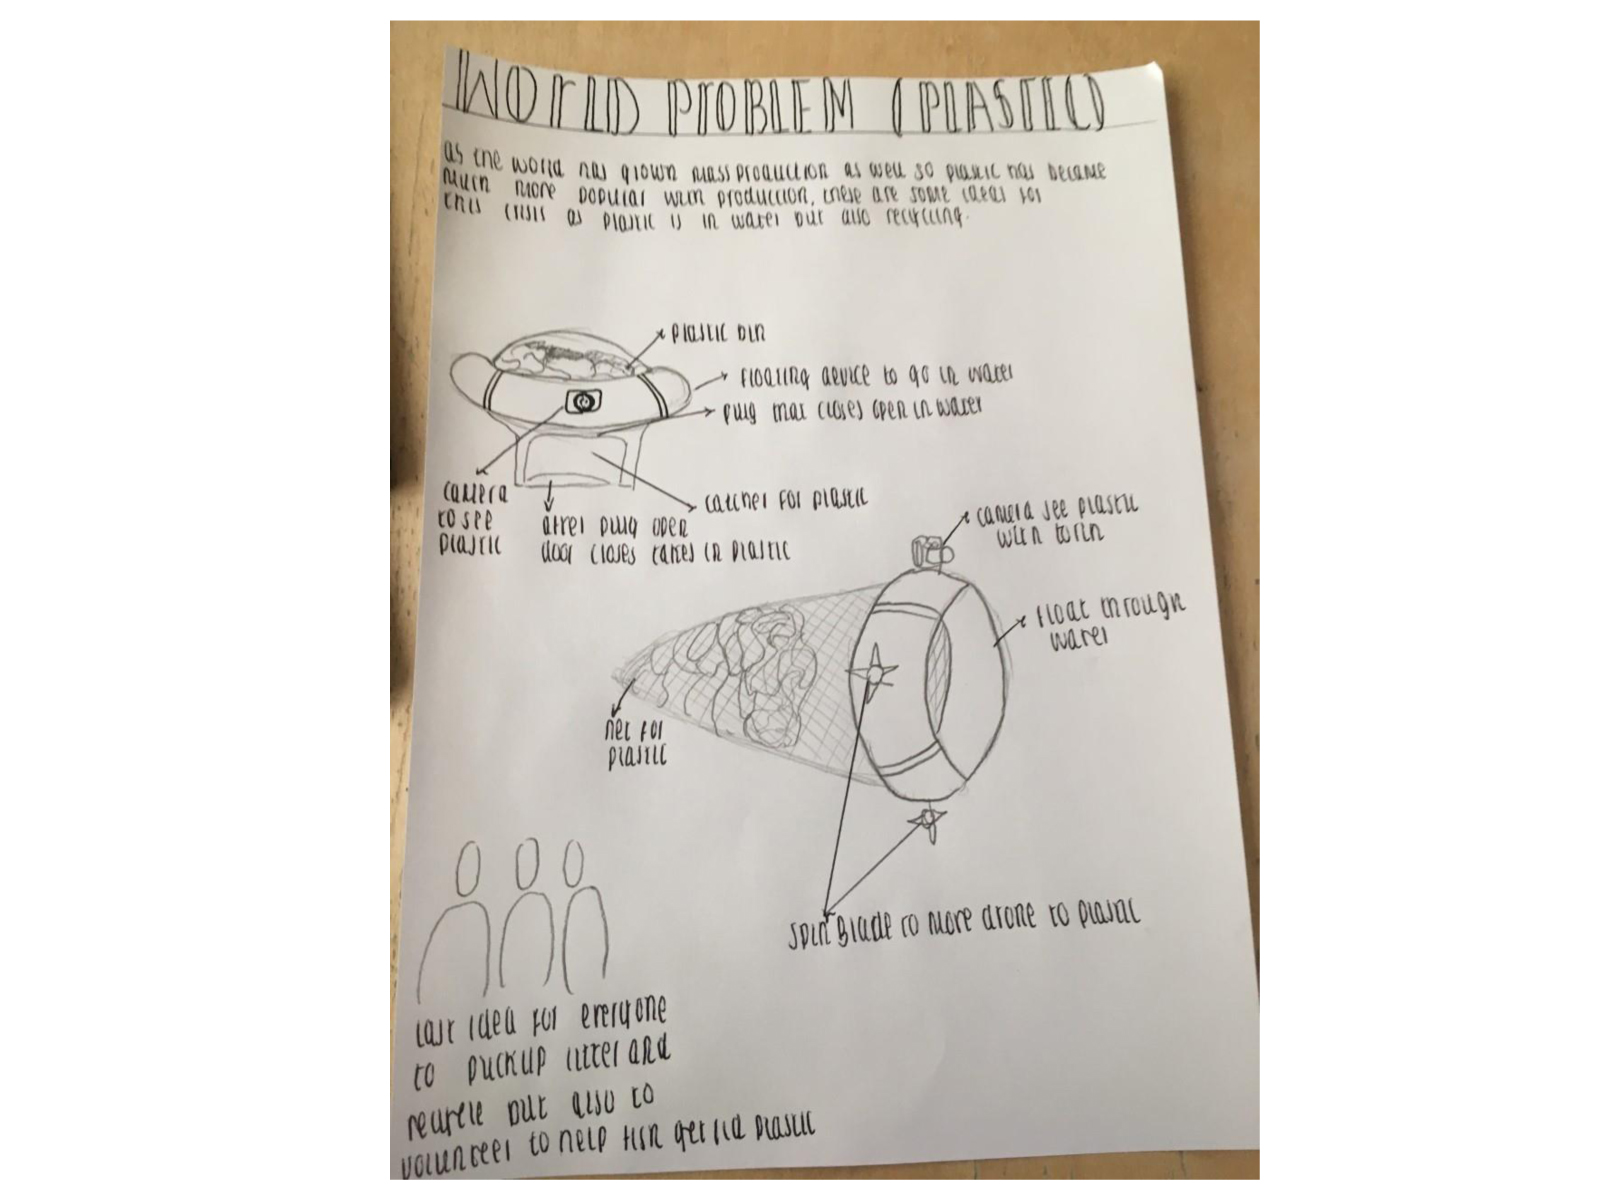 WORLD PROBLEM (PLASTIC)
as the world has grown mass production as well so plastic has became
much more popular with production, these are some ideas for
this crisis as plastic is in water but also recycling.
plastic bin
floating device to go in water
plug that closes open in water
camera
to see
plastic
after plug open
door closes takes in plastic
catcher for plastic
camera see plastic
with torin
float through
water
net for
plastic
spin Blade to move drone to plastic
last idea for everyone
to puckup litter and
recycle but also to
volunteer to help fish get rid plastic